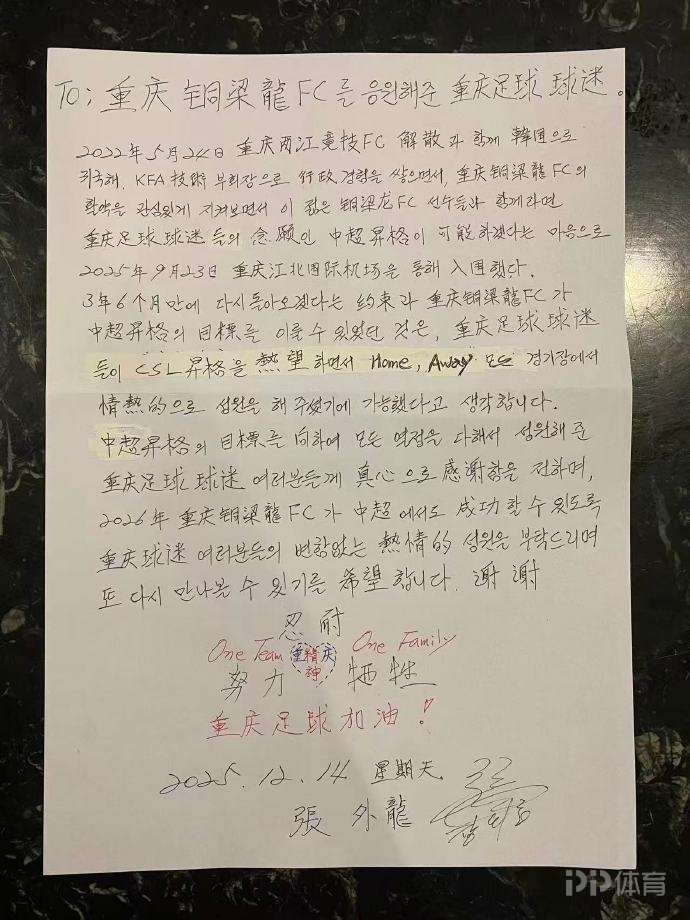 To: 重庆 铜梁龍 FC를 응원해준 重庆足球 球迷。
2022年 5月24日 重庆两江竞技FC 解散과 함께 韓国으로
귀국해, KFA 技術 부회장으로 行政 경험을 쌓으면서, 重庆铜梁龍FC의
활약을 관심있게 지켜보면서 이 젊은 铜梁龙FC 선수들과 함께라면
重庆足球 球迷들의 念願인 中超昇格이 可能하겠다는 마음으로
2025年 9月23日 重庆江北国际机场을 통해 入国했다.
3年6个月만에 다시돌아오겠다는 约束과 重庆铜梁龍FC가
中超昇格의 目標를 이룰 수 있었던 것은, 重庆足球 球迷
들이 CSL 昇格을 熱望하면서 Home, Away 모든 경기장에서
情熱的으로 성원을 해 주셨기에 가능했다고 생각합니다.
中超昇格의 目標를 向하여 모든 역정을 다해서 성원해 준
重庆足球 球迷 여러분들게 真心으로 感谢함을 전하며,
2026年 重庆铜梁龍FC가 中超에서도 成功할 수 있도록
重庆球迷 여러분들의 변함없는 熱情的 성원을 부탁드리며
또 다시 만나볼 수 있기를 希望합니다. 谢谢
忍耐
One Team 重庆精神 One Family
努力 牺牲
重庆足球加油!
2025.12.14 星期天
張 外龍
PP体育